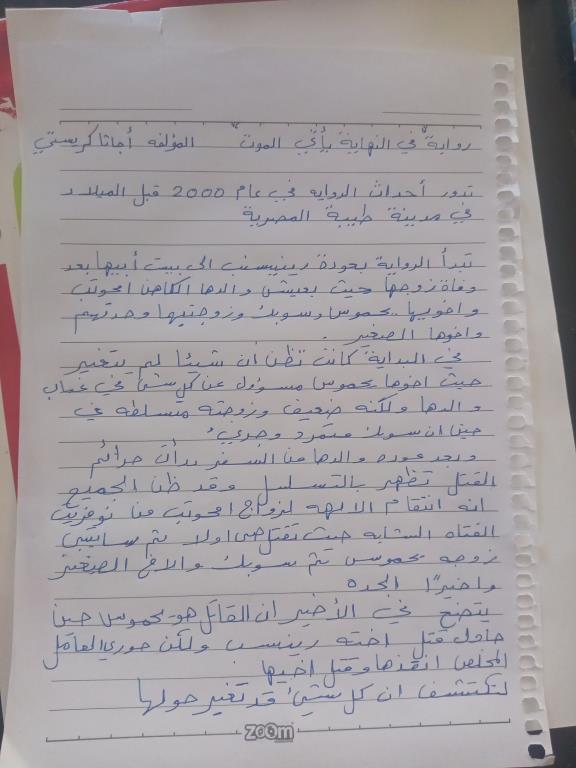 رواية "في النهاية يأتي الموت" المؤلفه أجاثا كريستي
تدور أحداث الروايه في عام 2000 قبل الميلاد
في مدينة طيبة المصرية
تبدأ الرواية بعودة رينيسنب الى بيت أبيها بعد
وفاة زوجها حيث يعيش والدها الكاهن امحوتب
واخويها يحموس وسوبك وزوجتيها وجدتهم
واخوها الصغير .
في البداية كانت تظن ان شيئا لم يتغير
حيث اخوها يحموس مسؤول عن كل شئ في غياب
والدها ولكنه ضعيف وزوجته متسلطه في
حين ان سوبك متمرد وجرئ
وبعد عوده والدها من السفر بدأت جرائم
القتل تظهر بالتسلسل وقد ظن الجميع
انه انتقام الالهه لزواج امحوتب من نوفريت
الفتاه الشابه حيث تقتل هى اولا ثم ساتيبى
زوجه يحموس ثم سوبك والاخ الصغير
واخيرًا الجده
يتضح في الأخير ان القاتل هو يحموس حين
حاول قتل اخته رينيسنب ولكن حوري العامل
المخلص انقذها وقتل اخيها
لتكتشف ان كل شئ قد تغير حولها
zoom